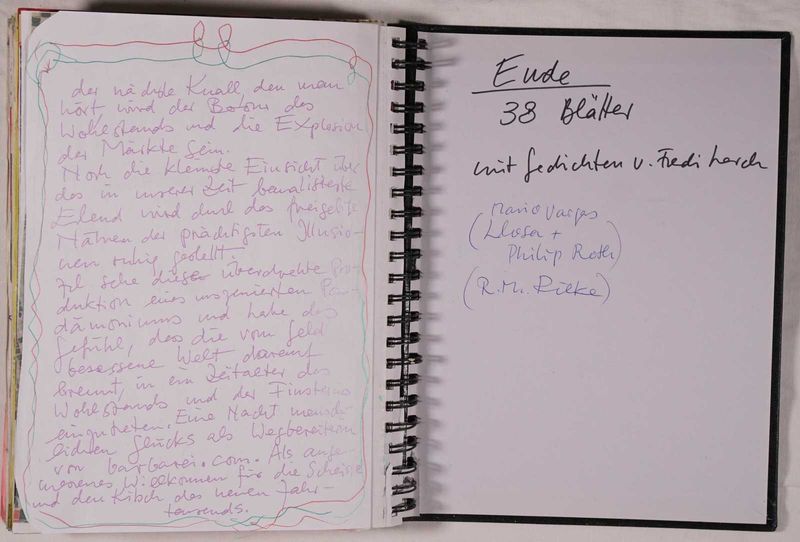 der nächste Knall, den man
hört wird der Boom des
Wohlstands und die Explosion
der Märkte sein.
Noch die kleinste Einsicht über
das in unserer Zeit banalisierte
Elend wird durch das
Nähren der prächtigsten Illusio-
nen ruhig gestellt.
Ich sehe diese überdrehte Pro-
duktion eines inszenierten Pan-
dämoniums und habe das
Gefühl, dass die vom Geld
besessene Welt darauf
brennt, in ein Zeitalter des
Wohlstands und der Finsternis
einzutreten. Eine Nacht mensch-
lichen Glücks als Wegbereiterin
von barbarei.com. Als ange-
messenes Willkommen für die Scheisse
und den Kitsch des neuen Jahr-
tausends.
Ende
38 Blätter
mit Gedichten v. Fredi Lerch
Mario Vargas
(Llosa +
Philip Roth)
(R.M. Rilke)